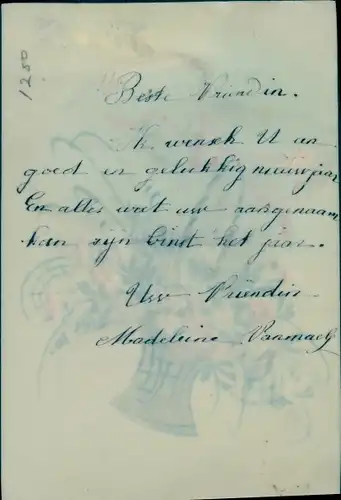 1250
Beste Vriendin.
Ik wensch U een
goed en gelukkig nieuwjaar
En alles wat uw aangenaam
kan zijn bint het jaar.
Uw Vriendin
Madeleine Vanmaele